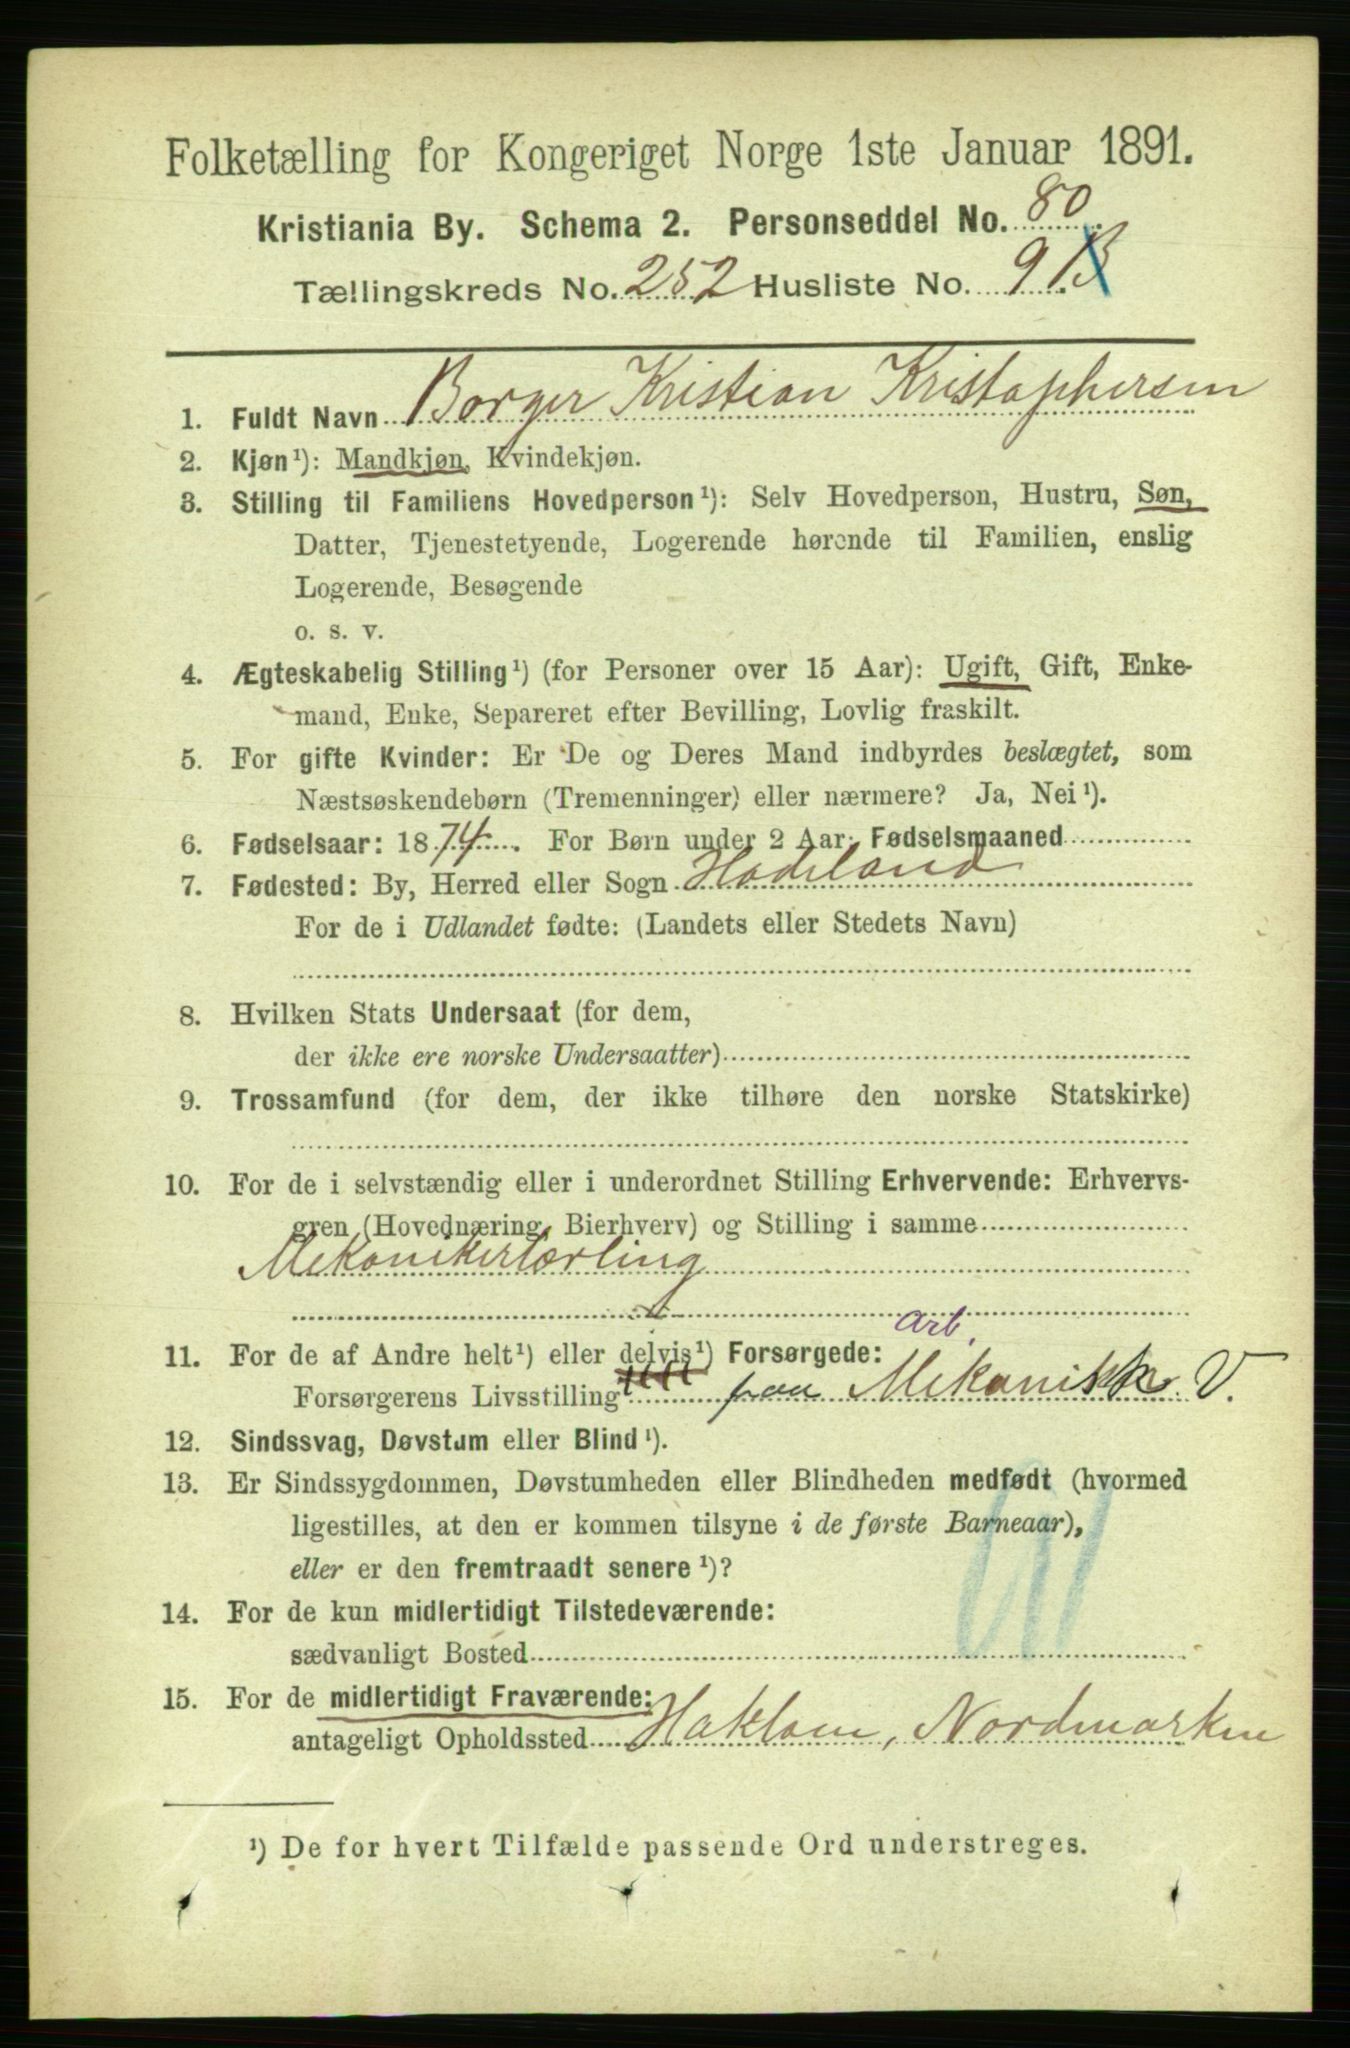 Folketælling for Kongeriget Norge 1ste Januar 1891.
Kristiania By. Schema 2. Personseddel No. 80
Tællingskreds No. 252 Husliste No. 9 B
1. Fuldt Navn Borger Kristian Kristophersen
2. Kjøn¹): Mandkjøn, Kvindekjøn.
3. Stilling til Familiens Hovedperson¹): Selv Hovedperson, Hustru, Søn,
Datter, Tjenestetyende, Logerende hørende til Familien, enslig
Logerende, Besøgende
o. s. v.
4. Ægteskabelig Stilling¹) (for Personer over 15 Aar): Ugift, Gift, Enke-
mand, Enke, Separeret efter Bevilling, Lovlig fraskilt.
5. For gifte Kvinder: Er De og Deres Mand indbyrdes beslægtet, som
Næstsøskendebørn (Tremenninger) eller nærmere? Ja, Nei¹).
6. Fødselsaar: 1874. For Børn under 2 Aar: Fødselsmaaned
7. Fødested: By, Herred eller Sogn Hadeland
For de i Udlandet fødte: (Landets eller Stedets Navn)
8. Hvilken Stats Undersaat (for dem,
der ikke ere norske Undersaatter)
9. Trossamfund (for dem, der ikke tilhøre den norske Statskirke)
10. For de i selvstændig eller i underordnet Stilling Erhvervende: Erhvervs-
gren (Hovednæring, Bierhverv) og Stilling i samme
Mekanikerlærling
Arb.
11. For de af Andre helt¹) eller delvis¹) Forsørgede:
Forsørgerens Livsstilling paa Mekanikk V.
12. Sindssvag, Døvstum eller Blind¹).
13. Er Sindssygdommen, Døvstumheden eller Blindheden medfødt (hvormed
ligestilles, at den er kommen tilsyne i de første Barneaar),
eller er den fremtraadt senere¹)?
14. For de kun midlertidigt Tilstedeværende:
sædvanligt Bosted
15. For de midlertidigt Fraværende:
antageligt Opholdssted Haklom, Nordmarken
¹) De for hvert Tilfælde passende Ord understreges.